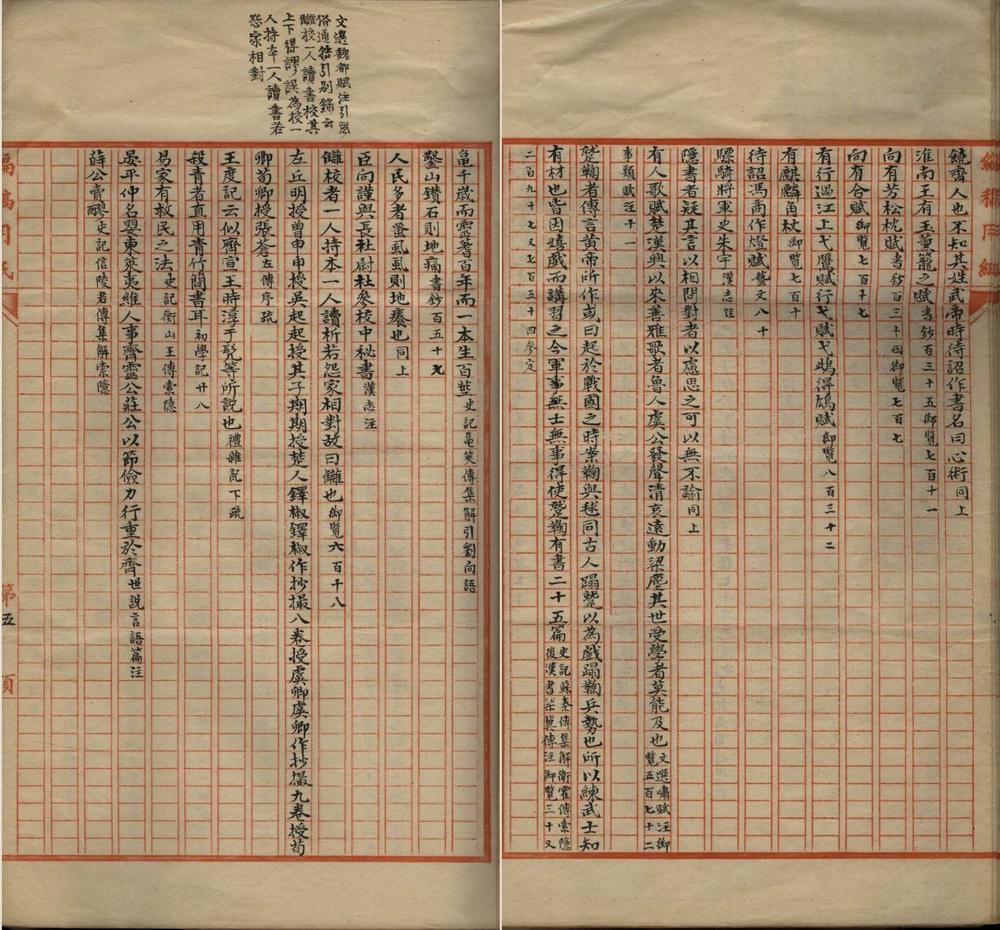 饒齋人也不知其姓武帝時待詔作書名曰心術同上
淮南王有玉熏籠之賦書鈔百三十五御覽七百十一
向有芳松枕賦書鈔百三十四御覽七百七
向有合賦御覽七百十七
有行過江上弋鴈賦行弋賦弋雌得雄賦御覽八百三十二
有麒麟角杖御覽七百十
待詔馮商作燈賦藝文八十
驃騎將軍史朱宇漢志注
隱書者疑其言以相問對者以慮思之可以無不諭同上
有人歌賦楚漢興以來善雅歌者魯人虞公發聲清哀遠動梁塵其世受學者莫能及也文選嘯賦注御
覽五百七十二
事類賦注十一
蹵鞠者傳言黃帝所作或曰起於戰國之時案鞠與毬同古人蹋蹵以為戲蹋鞠兵勢也所以練武士知
有材也皆因嬉戲而講習之今軍事無士無事得使蹵鞠有書二十五篇史記蘇秦傳集解衛霍傳索隱
後漢書梁冀傳注御覽三十又
二百九十七又七百五十四參定
文選魏都賦注引風
俗通引別錄云
讎校一人讀書校其
上下得謬誤為校一
人持本一人讀書若
怨家相對
龜千歲而靈蓍百年而一本生百莖史記龜筴傳集解引劉向語
鑿山鑽石則地痛書鈔百五十九
人民多者蚤虱虱則地癢也同上
臣向謹與長社尉杜參校中秘書漢志注
讎校者一人持本一人讀析若怨家相對故曰讎也御覽六百十八
左丘明授曾申申授吳起起授其子期期授楚人鐸椒鐸椒作抄撮八卷授虞卿虞卿作抄撮九卷授荀
卿荀卿授張蒼左傳序疏
王度記云似齊宣王時淳于髡等所說也禮雜記下疏
殺青者直用青竹簡書耳初學記廿八
易家有救民之法史記衡山王傳索隱
晏平仲名嬰東萊夷維人事齊靈公莊公以節儉力行重於齊世說言語篇注
薛公賣膠史記信陵君傳集解索隱
第五頁